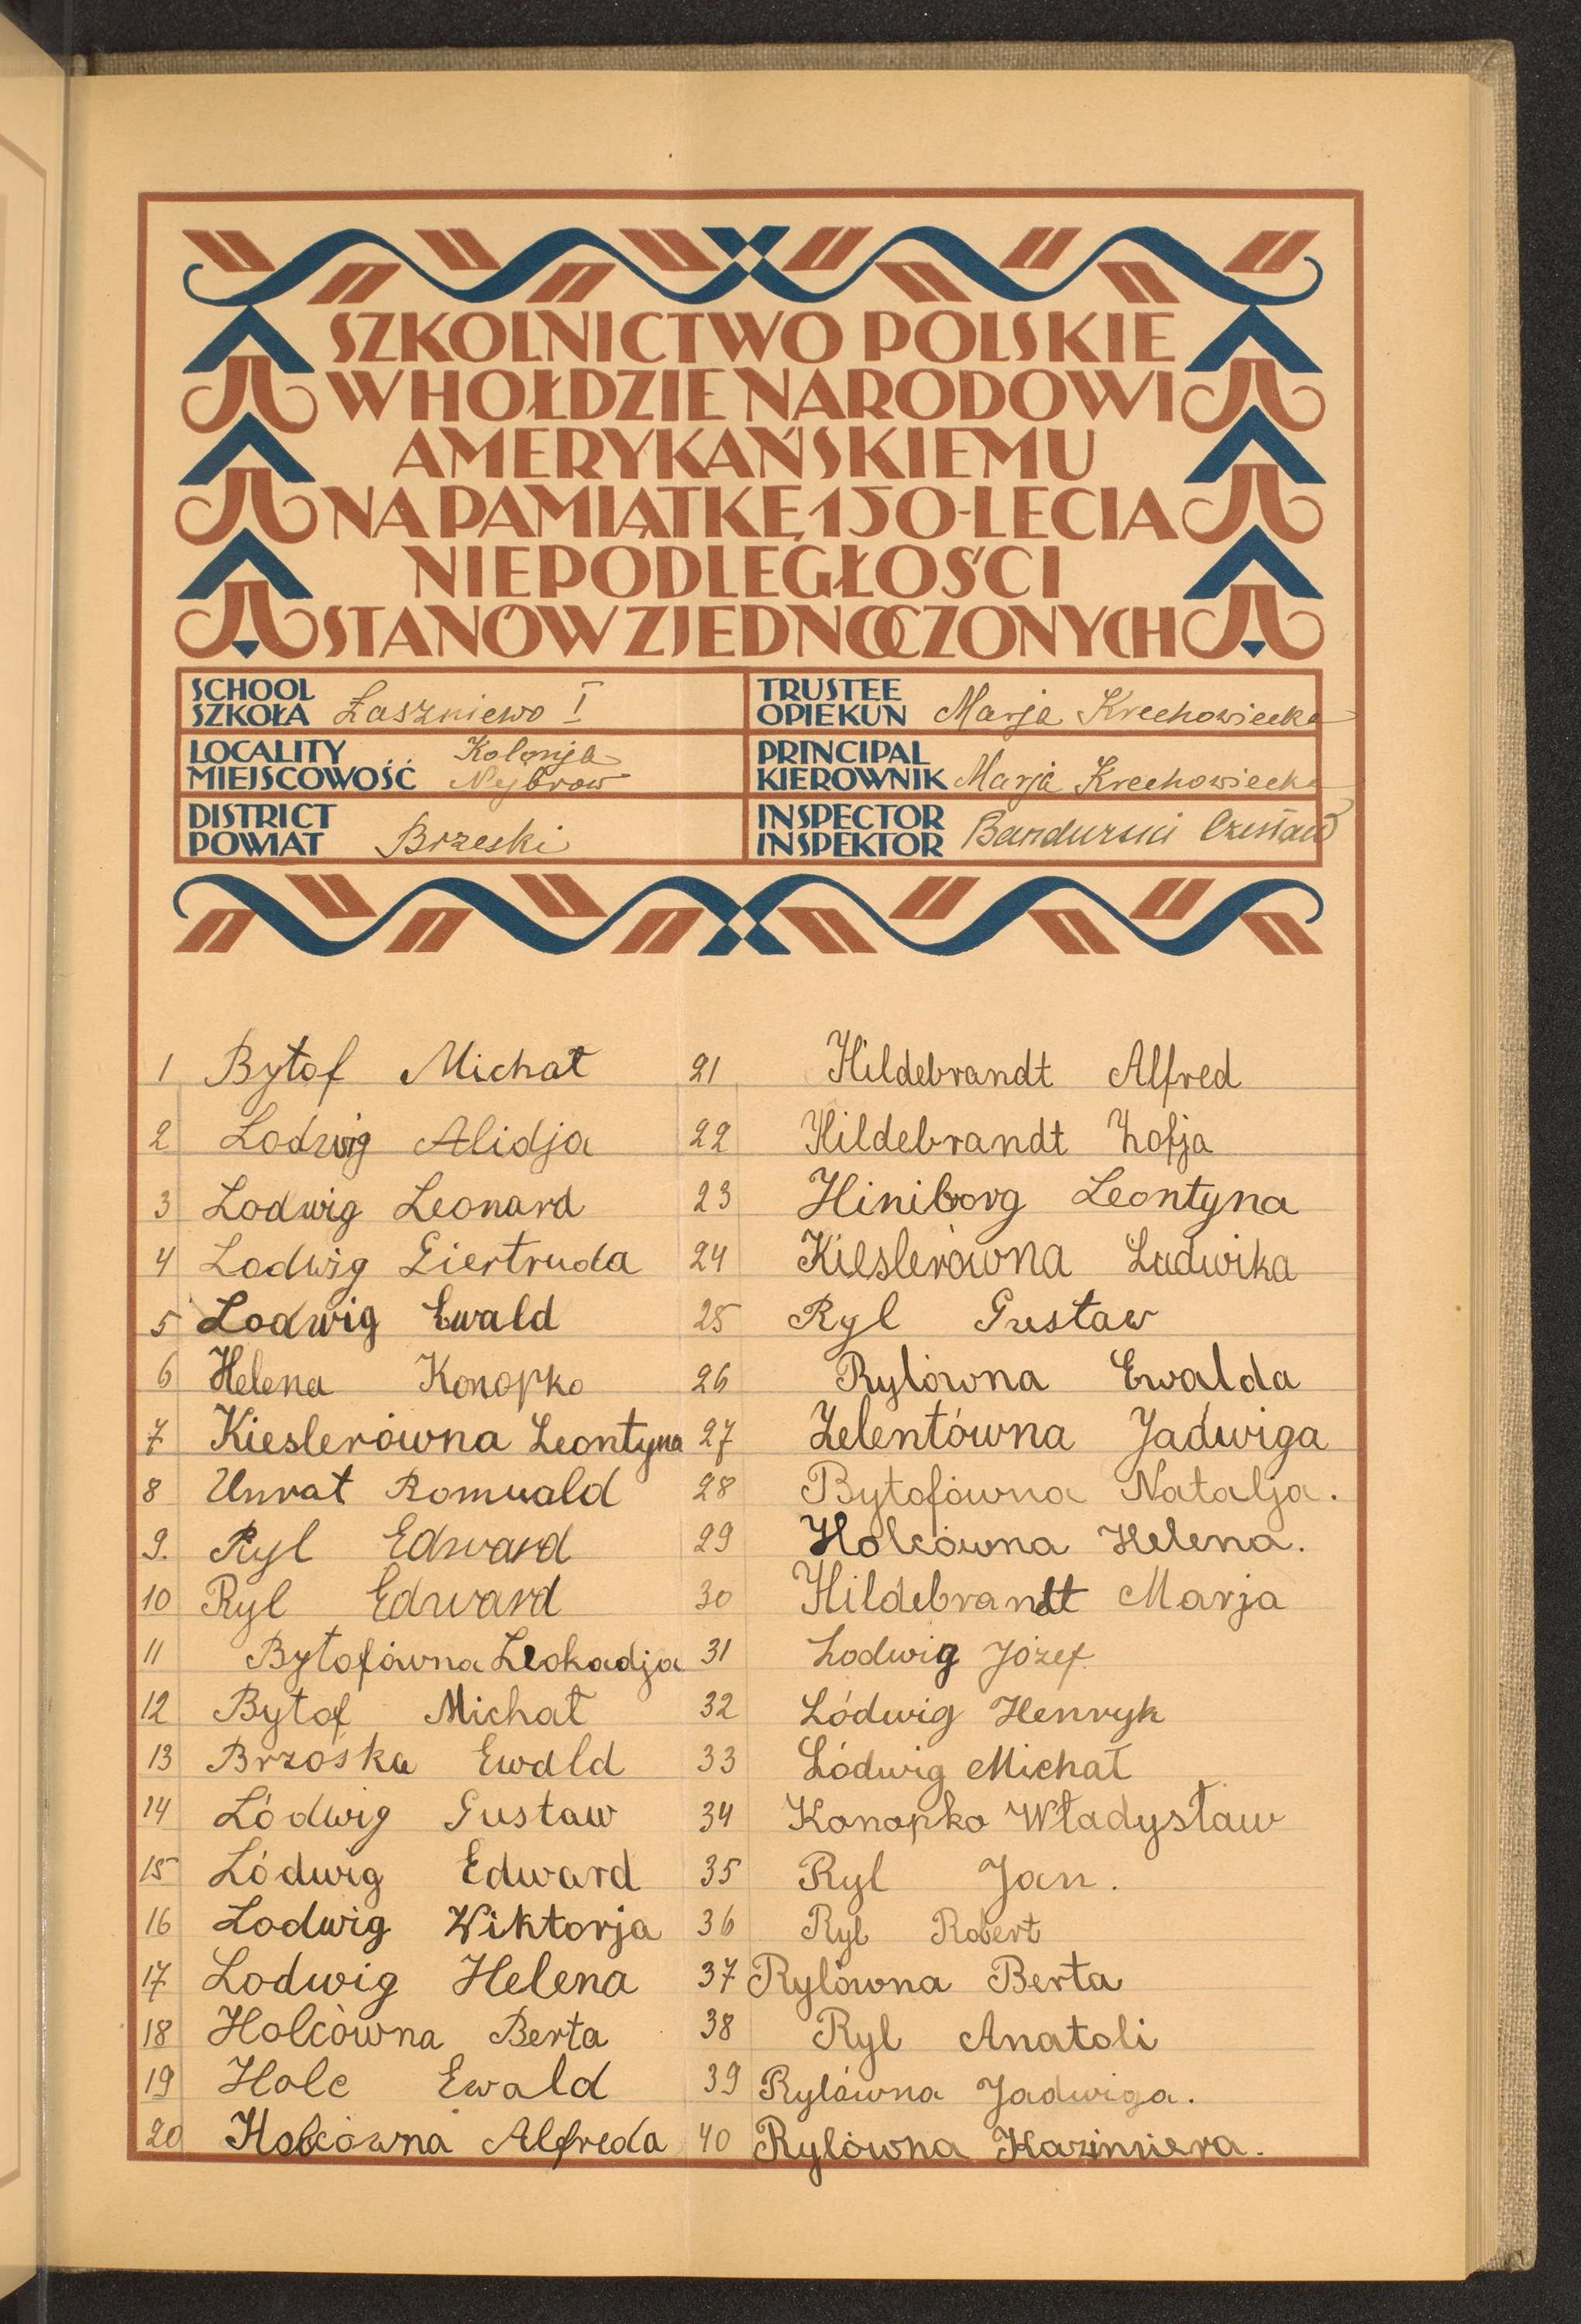 SZKOLNICTWO POLSKIE
W HOŁDZIE NARODOWI
AMERYKAŃSKIEMU
NA PAMIĄTKĘ 150-LECIA
NIEPODLEGŁOŚCI
STANÓW ZJEDNOCZONYCH
SCHOOL
SZKOŁA Łaszniewo I
TRUSTEE
OPIEKUN Marja Krechowiecka
LOCALITY
MIEJSCOWOŚĆ Kolonja
Nejbrow
PRINCIPAL
KIEROWNIK Marja Krechowiecka
DISTRICT
POWIAT Brzeski
INSPECTOR
INSPEKTOR Bandurski Czesław
1 Bytof Michał
2 Lodwig Alidja
3 Lodwig Leonard
4 Lodwig Giertruda
5 Lodwig Ewald
6 Helena Konopko
7 Kieslerówna Leontyna
8 Unrat Romuald
9. Ryl Edward
10 Ryl Edward
11 Bytofówna Leokadja
12 Bytof Michał
13 Brzóska Ewald
14 Lódwig Gustaw
15 Lódwig Edward
16 Lodwig Wiktorja
17 Lodwig Helena
18 Holcówna Berta
19 Holc Ewald
20 Holcówna Alfreda
21 Hildebrandt Alfred
22 Hildebrandt Zofja
23 Hiniborg Leontyna
24 Kieslerówna Ludwika
25 Ryl Gustaw
26 Rylówna Ewalda
27 Zelentówna Jadwiga
28 Bytofówna Natalja.
29 Holcówna Helena.
30 Hildebrandt Marja
31 Lodwig Józef
32 Lódwig Henryk
33 Lódwig Michał
34 Konopko Władysław
35 Ryl Jan.
36 Ryl Robert
37 Rylówna Berta
38 Ryl Anatoli
39 Rylówna Jadwiga.
40 Rylówna Kazimiera.